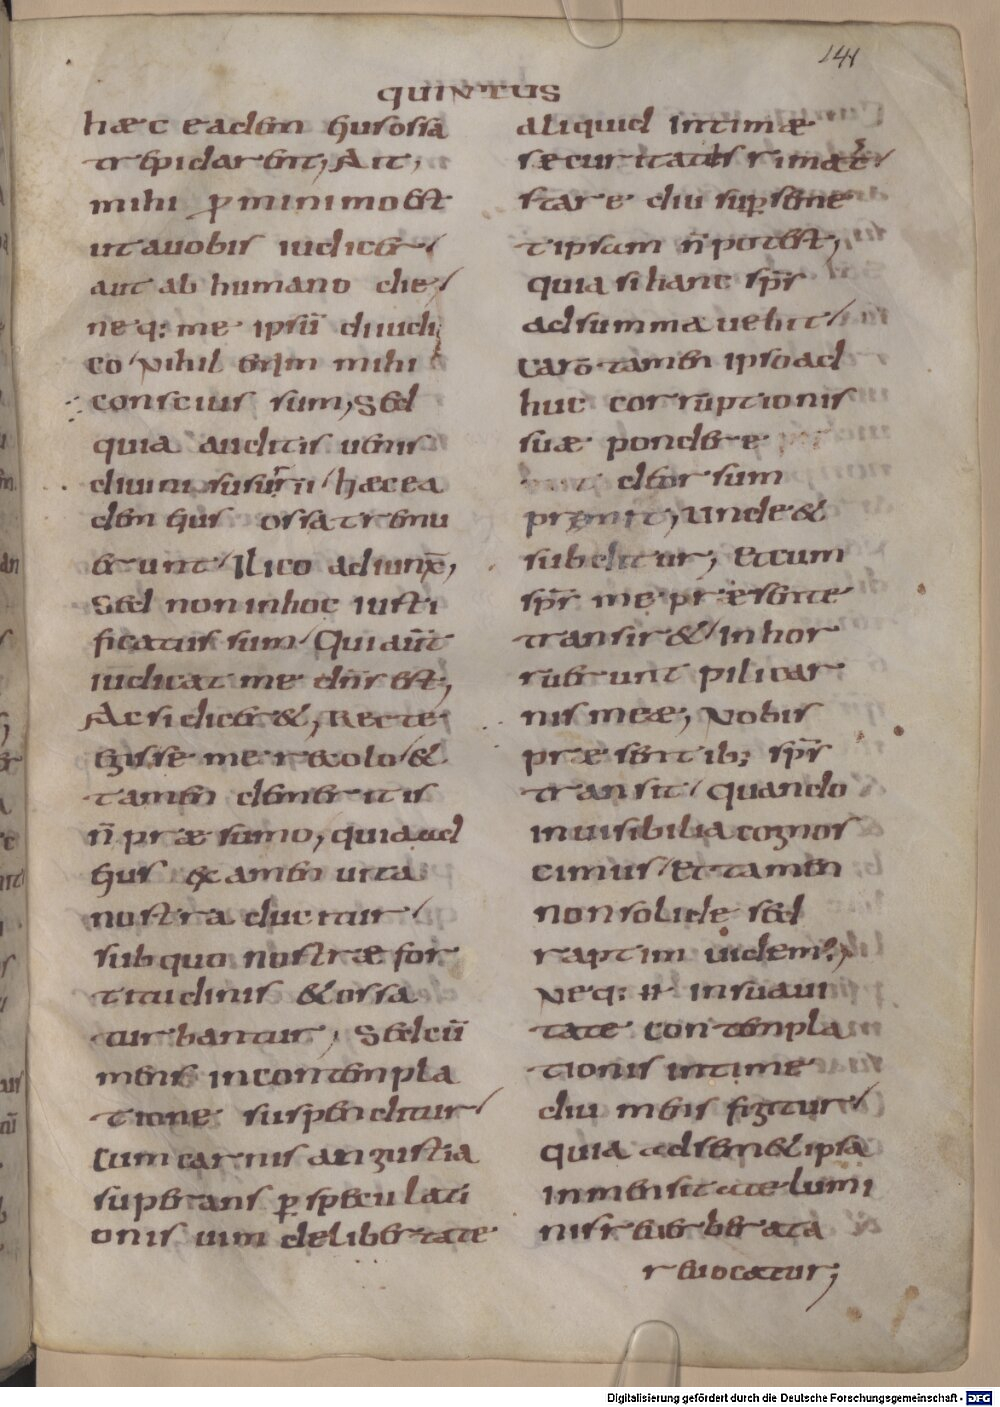 141
QUINTUS
hæc eadem eius ossa
trepidarent, Ait,
mihi ꝑ minimo est
ut a uobis iudicer/
aut ab humano die/
neq: me ipsū diiudi
co/ Nihil enim mihi
conscius sum, Sed
quia auditis uenis
diuini susurri / hæc ea
dem eius ossa tremu
erunt/ Ilico adiunx̄,
Sed non in hoc iusti
ficatus sum/ Qui aūt
iudicat me dn̄s est,
Ac si dicer&, Recte
egisse me recolo/ &
tamen de meritis
n̄ præsumo, quia ad
eius examen uita
nostra ducitur/
sub quo nostræ for
titudinis & ossa
turbantur, Sed cū
mens in contempla
tione suspenditur/
Cum carnis angustia
superans ꝑ speculati
onis uim de libertate
aliquid intimæ
securitatis rimat̄/
stare diu sup̱ semet
ipsam n̄ potest,
quia si hanc sp̄s
ad summa uehit/
Caro tamen ipso ad
huc corruptionis
suæ pondere
deorsum
premit, Unde &
subditur, Et cum
sp̄s me præsente
transir&/ Inhor
ruerunt pili car
nis meæ, Nobis
præsentib; sp̄s
transit/ quando
inuisibilia cognos
cimus/ Et tamen
non solide sed
raptim uidem?,
Neq: in suaui
tate contempla
tionis intime
diu mens figitur/
quia ad sem& ipsa
inmensitate lumi
nis reuerberata
reuocatur;
Digitalisierung gefördert durch die Deutsche Forschungsgemeinschaft - DFG